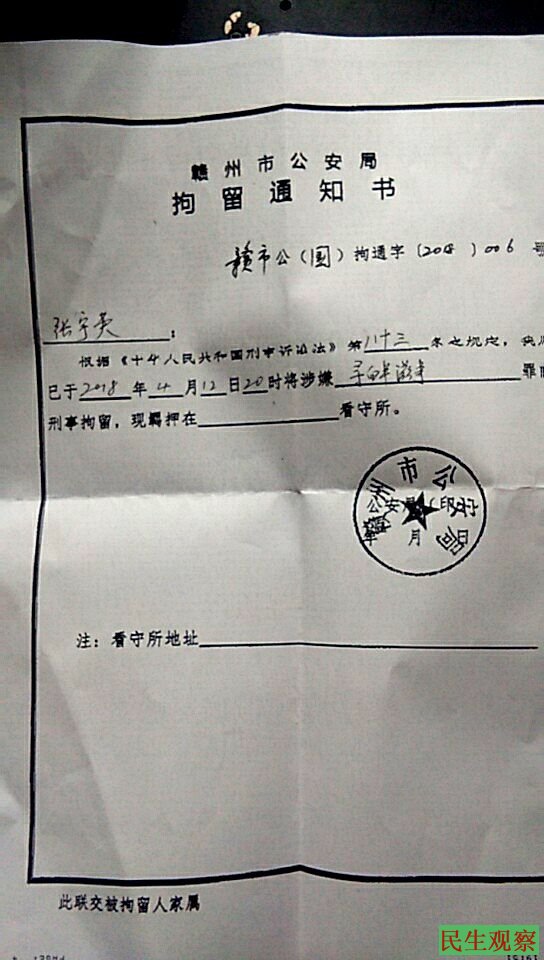 赣州市公安局
拘留通知书
赣市公(国)拘通字〔2018〕006号
张宇英:
根据《中华人民共和国刑事诉讼法》第八十三条之规定,我局
已于2018年4月12日20时将涉嫌寻衅滋事罪的
刑事拘留,现羁押在 看守所。
赣州市公安局
公安局(印)
月
注:看守所地址
此联交被拘留人家属
民生观察